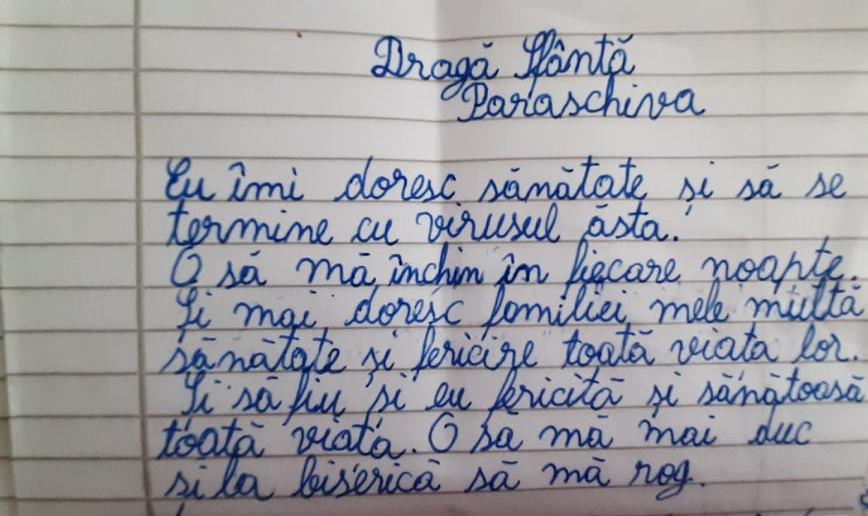 Dragă Sfântă
Paraschiva
Eu îmi doresc sănătate și să se
termine cu virusul ăsta.
O să mă închin în fiecare noapte.
Și mai doresc familiei mele multă
sănătate și fericire toată viata lor.
Și să fiu și eu fericită și sănătoasă
toată viată. O sa mă mai duc
și la biserică să mă rog.